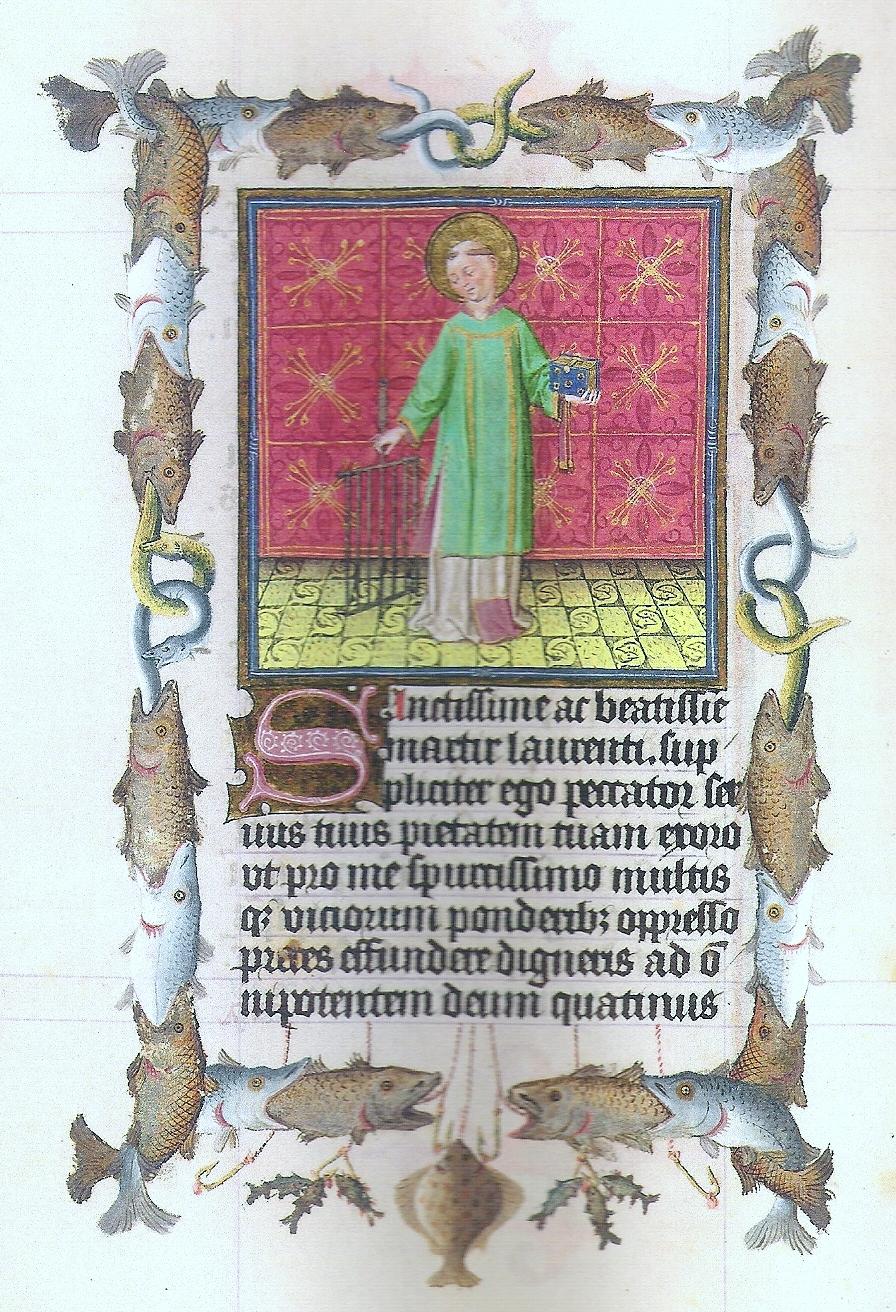 Sanctissime ac beatissie
martir laurenti. sup
pliciter ego peccator ser
uus tuus pietatem tuam exoro
vt pro me spurcissimo multis
qꝫ viciorum ponderibꝫ oppresso
preces effundere digneris ad o̅
nipotentem deum quatinus